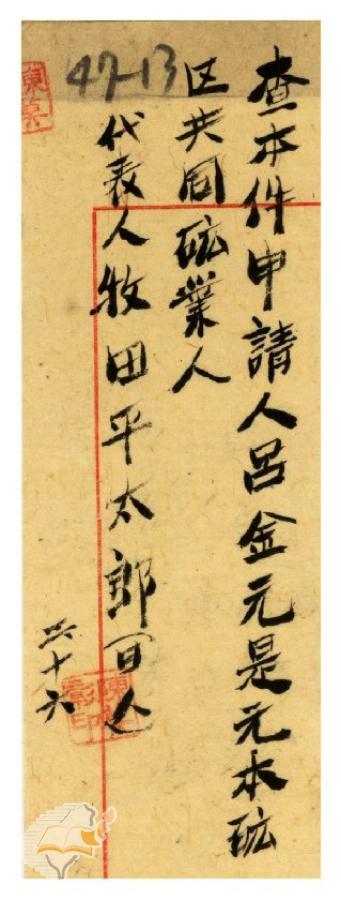 47-13
查本件申請人呂金元是元本砿
区共同砿業人
代表人牧田平太郎
十六